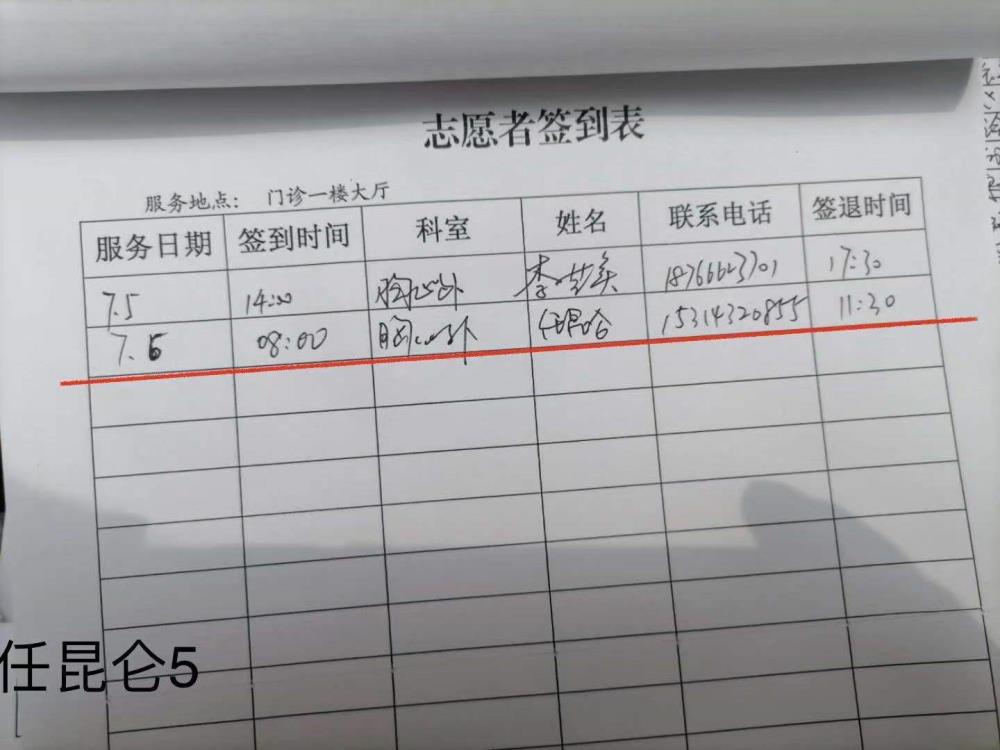 志愿者签到表
服务地点： 门诊一楼大厅
服务日期 签到时间 科室 姓名 联系电话 签退时间
7.5 14:00 胸心外 李 17:30
7.6 08:00 胸心外 任昆 15314320855 11:30
任昆仑5